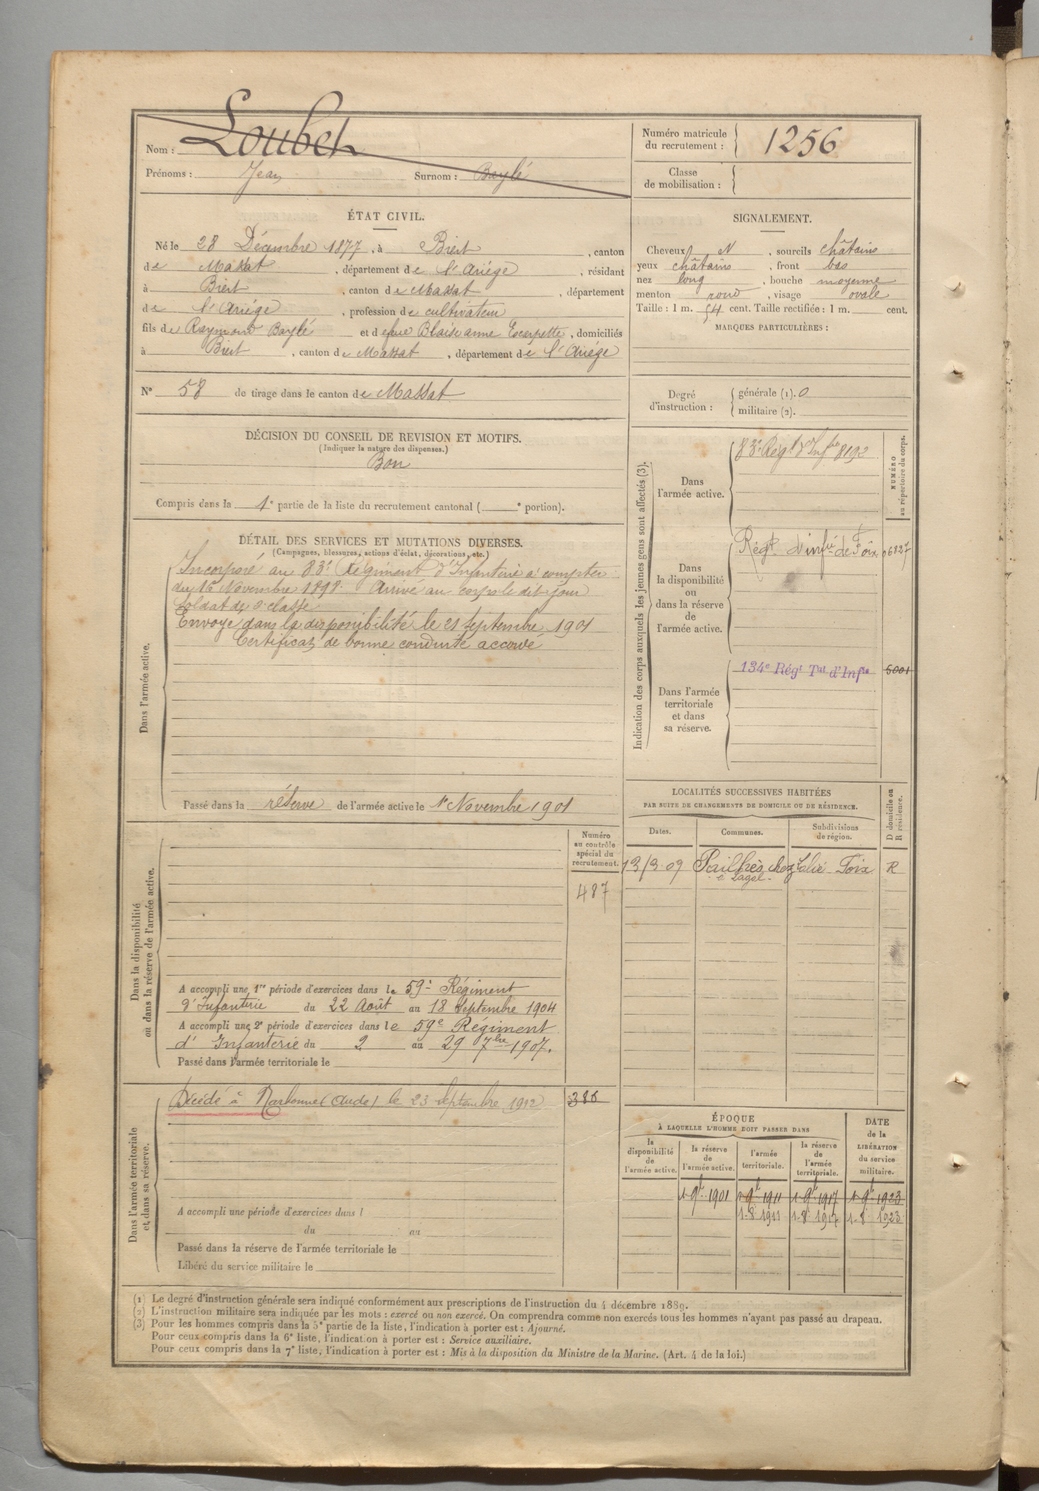 Nom : Loubet
Prénoms : Jean Surnom : Baylé
Numéro matricule du recrutement : 1256
Classe de mobilisation :
ÉTAT CIVIL.
Né le 28 Décembre 1877, à Biert, canton
de Massat, département de l'Ariége, résidant
à Biert, canton de Massat, département
de l'Ariége, profession de cultivateur
fils de Raymond Baylé et de feue Blaise anne Escapette, domiciliés
à Biert, canton de Massat, département de l'Ariége
N° 58 de tirage dans le canton de Massat
SIGNALEMENT.
Cheveux N, sourcils châtains
yeux châtains, front bas
nez long, bouche moyenne
menton rond, visage ovale
Taille : 1 m. 54 cent. Taille rectifiée : 1 m. cent.
MARQUES PARTICULIÈRES :
Degré d'instruction : générale (1). 0
militaire (2).
DÉCISION DU CONSEIL DE REVISION ET MOTIFS.
(Indiquer la nature des dispenses.)
Bon
Compris dans la 1e partie de la liste du recrutement cantonal ( e portion).
DÉTAIL DES SERVICES ET MUTATIONS DIVERSES.
(Campagnes, blessures, actions d'éclat, décorations, etc.)
Dans l'armée active.
Incorporé au 83e Régiment d'Infanterie à compter
du 16 Novembre 1898. Arrivé au corps le dit jour
Soldat de 2e classe
Envoyé dans la disponibilité le 21 septembre 1901
Certificat de bonne conduite accordé
Passé dans la réserve de l'armée active le 1er Novembre 1901
Indication des corps auxquels les jeunes gens sont affectés (3).
NUMÉRO au répertoire du corps.
Dans l'armée active.
83e Régt d'Infie 8192
Dans la disponibilité ou dans la réserve de l'armée active.
Régt d'infie de Foix 06827
Dans l'armée territoriale et dans sa réserve.
134e Régt Tal d'Infie 6001
LOCALITÉS SUCCESSIVES HABITÉES
PAR SUITE DE CHANGEMENTS DE DOMICILE OU DE RÉSIDENCE.
Dates. Communes. Subdivisions de région. D domicile ou R résidence.
13/3.09 Pailhès chez Foix R
Dans la disponibilité ou dans la réserve de l'armée active.
Numéro au contrôle spécial du recrutement.
487
A accompli une 1re période d'exercices dans le 59e Régiment
d'Infanterie du 22 Août au 18 Septembre 1904
A accompli une 2e période d'exercices dans le 59e Régiment
d'Infanterie du 2 au 29 7bre 1907.
Passé dans l'armée territoriale le
Dans l'armée territoriale et dans sa réserve.
Décédé à Narbonne (Aude) le 23 septembre 1912 386
A accompli une période d'exercices dans l
du au
Passé dans la réserve de l'armée territoriale le
Libéré du service militaire le
ÉPOQUE
À LAQUELLE L'HOMME DOIT PASSER DANS
la disponibilité de l'armée active.
la réserve de l'armée active.
l'armée territoriale.
la réserve de l'armée territoriale.
DATE de la LIBÉRATION du service militaire.
1 9bre 1901 1 9bre 1911 1 9bre 1917 1 9bre 1923
1-8 1911 1-8 1917 1-8 1923
(1) Le degré d'instruction générale sera indiqué conformément aux prescriptions de l'instruction du 4 décembre 1889.
(2) L'instruction militaire sera indiquée par les mots : exercé ou non exercé. On comprendra comme non exercés tous les hommes n'ayant pas passé au drapeau.
(3) Pour les hommes compris dans la 5e partie de la liste, l'indication à porter est : Ajourné.
Pour ceux compris dans la 6e liste, l'indication à porter est : Service auxiliaire.
Pour ceux compris dans la 7e liste, l'indication à porter est : Mis à la disposition du Ministre de la Marine. (Art. 4 de la loi.)